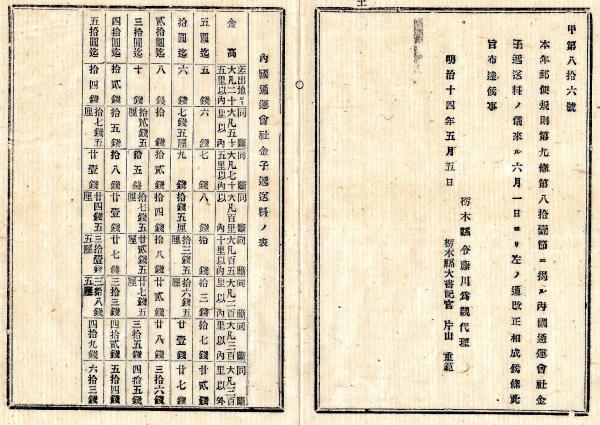 甲第八拾六號
本年郵便規則第九條第八拾壹節ニ揭ル內國通運會社金
子遞送料ノ儀來ル六月一日ヨリ左ノ通改正相成候條此
旨布達候事
明治十四年五月五日
栃木縣令藤川爲親代理
栃木縣大書記官 片山重範
內國通運會社金子遞送料ノ表
金高 差出地ヨリ大凡二十五里以內 同斷大凡五十里以內 同斷大凡七十五里以內 同斷大凡百里以內 同斷大凡百五十里以內 同斷大凡二百里以內 同斷大凡三百里以內 同斷大凡三百里以外
五圓迄 五錢 六錢 七錢 八錢 拾錢 拾三錢 拾七錢 廿貳錢
拾圓迄 六錢 七錢五厘 九錢 拾錢五厘 拾三錢五厘 拾六錢五厘 廿壹錢 廿七錢
貳拾圓迄 八錢 拾錢 拾貳錢 拾四錢 拾八錢 廿貳錢 廿八錢 三拾六錢
三拾圓迄 十錢 拾貳錢五厘 拾五錢 拾七錢五厘 廿貳錢五厘 廿七錢五厘 三拾五錢 四拾五錢
四拾圓迄 拾貳錢 拾五錢 拾八錢 廿壹錢 廿七錢 三拾三錢 四拾貳錢 五拾四錢
五拾圓迄 拾四錢 拾七錢五厘 廿壹錢 廿四錢五厘 三拾壹錢五厘 三拾八錢五厘 四拾九錢 六拾三錢